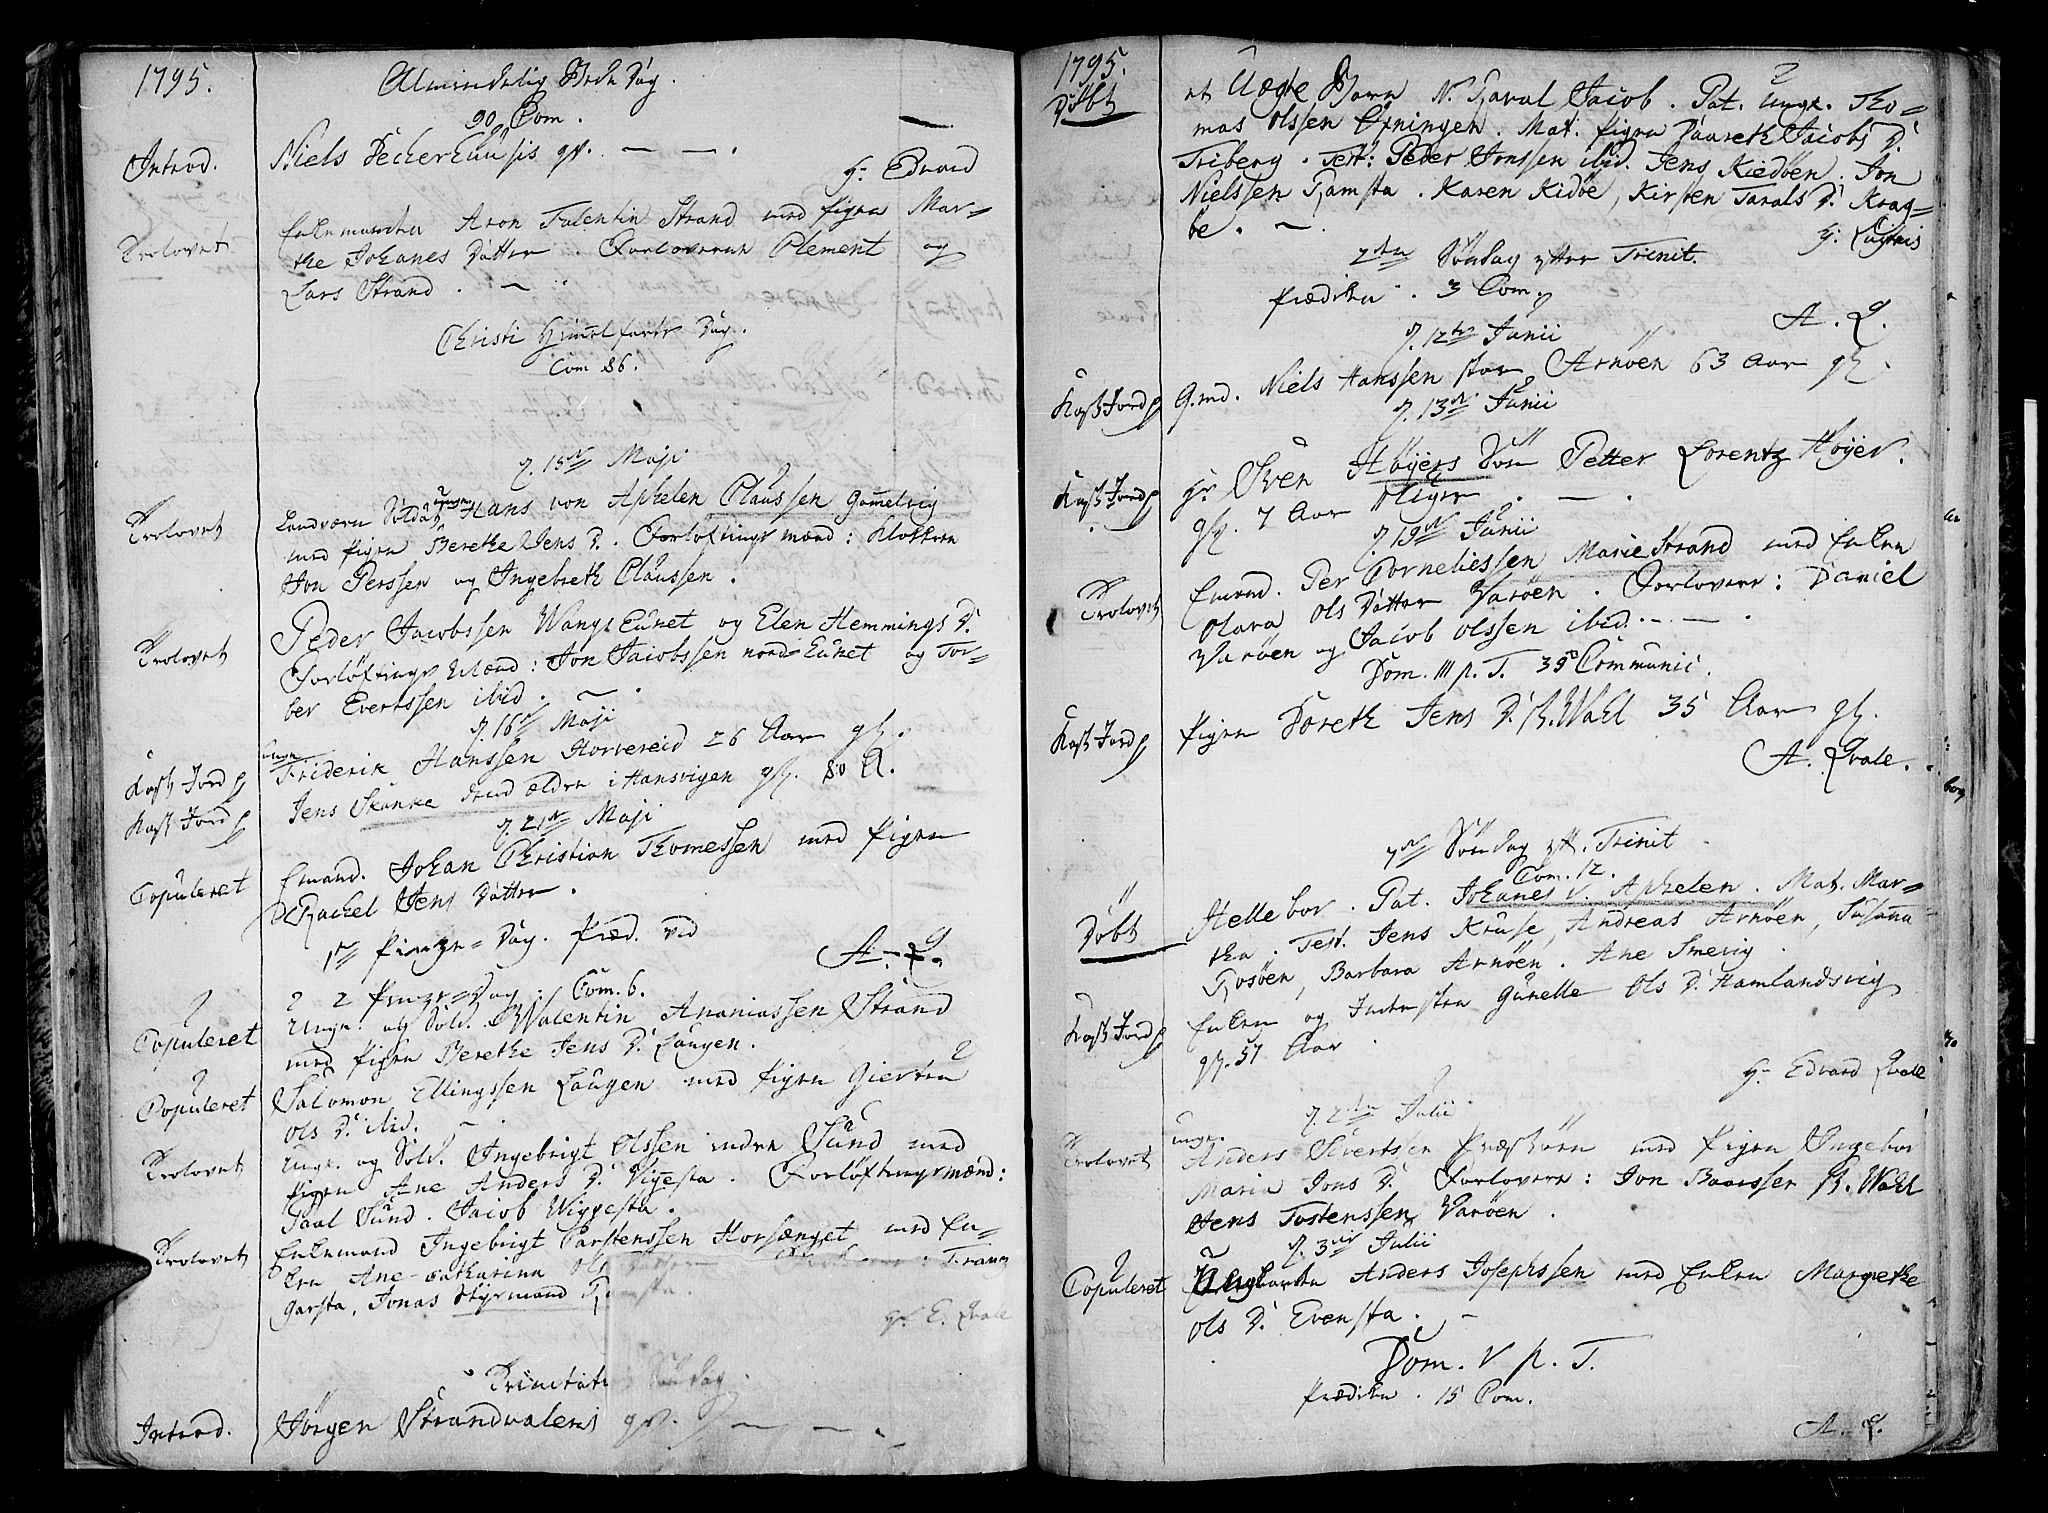 1795.
Almindelig Bede Dag.
90 Com.
Introd. Niels Deckerhausis qv. — — .
Hr Edvard
Trolovet Enkemanden Aron Falentin Strand med pigen Mar=
the Johanes Datter. Forloverne Clement og
Lars Strand. —
Christi Himmelfarts Dag.
Com 86.
d. 15de Maji
Trolovet Landværn Soldat ungk. Hans von Aphelen Claussen Gamelvig
med pigen Berethe Jens D. Forløftings mænd: Klokken
Jon Perssen og Ingebreth Claussen.
Trolovet Peder Jacobssen Wangs Eünet og Elen Hemmings D.
Forløftings Mænd: Jon Jacobssen nord-Eünet og Tor=
ber Evertssen ibid. —
d. 16de Maji
Kast Jord p ungk. Friderik Hanssen Horvereid 26 Aar gl.
Kast Jord p Jens Skanke dend ældre i Hansvigen gl. 80 A.
d. 21de Maji
Copuleret Emand. Johan Christian Thomessen med pigen
Rachel Jens Datter.
1ste Pintze=Dag. Præd. ved
A. Q.
2 Pintze=Dag: Com. 6.
Copuleret Ungk. og Sold. Walentin Ananiassen Strand
med pigen Berethe Jens D. Laugen.
Copuleret Salomon Ellingssen Laugen med pigen Giertru
Ols D. ibid. —
Trolovet Ungk. og Sold. Ingebrigt Olssen indre Sünd med
pigen Ane Anders D. Vigesta. Forløftingsmænd:
Paal Sünd. Jacob Wiggesta.
Trolovet Enkemand Ingebrigt Carstenssen Horsænget med En=
ken Ane-Catharina Ols Datter
garsta, Jonas Styrmand
Hr E. Qvale
Trinitatis Søndag.
Introd. Jørgen Strandvalens qv. — —
1795.
Døbt et Uægte Barn N. Taral Jacob. Pat. Ungk. Tho=
mas Olssen Øxningen. Mat. pigen Daareth Jacobs D.
Friberg. Test: Peder Jonssen ibid. Jens Kiedøen. Jon
Nielssen Ramsta. Karen Kidøe, Kirsten Tarals D. Krag=
be. —
Hr
2den Søndag efter Trinit.
Prædiken. 3 Com.
A. Q.
d. 12te Junii
Kast Jord p G.md. Niels Hanssen stor Arnøen 63 Aar gl.
d. 13de Junii
Kast Jord p Hr Sven Høyers Søn Petter Lorentz Høyer.
gl. 7 Aar — .
d. 19de Junii
Trolovet Emand. Per Corneliessen Marie Strand med Enken
Olava Ols Datter Varøen. Forlovere: Daniel
Varøen og Jacob Olssen ibid. — — .
Dom. III p. T. 39 Communic.
Kast Jord p pigen Doreth Jens D. St. Wahl 35 Aar gl.
A. Qvale.
Søndag eft. Trinit
Com. 12.
Døbt Hellebor. Pat. Johanes v. Aphelen. Mat. Mar=
tha. Test. Jens Kruse, Andreas Arnøen, Susanna
Rosøen, Barbara Arnøen. Ane Smevig.
Kast Jord p Enken og Indersten Gunelle Ols D. Hamlandsvig
gl. 57 Aar.
Hr Edvard Qvale
d. 2den Julii
Trolovet ungk. Anders Sivertsen Præstøen med Pigen Ingebor
Maria Jons D. Forlovere: Jon Baarssen St. Wahl
Jens Tostenssen Varøen.
d. 3die Julii
Copuleret Ungkarlen Anders Josephssen med Enken Margrethe
Ols D. Evensta. —
Dom. V p. T.
Prædiken. 15 Com.
A. Q.